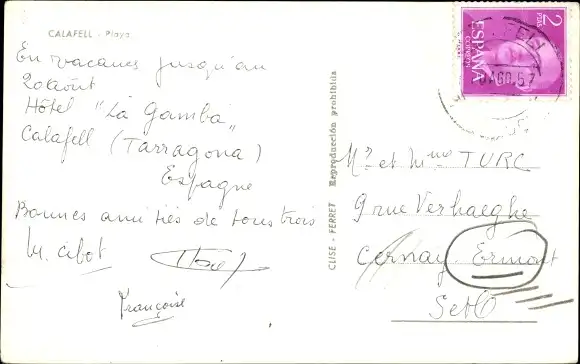 CALAFELL - Playa
En vacances jusqu'au
20 août
Hôtel "La Gamba"
Calafell (Tarragona)
Espagne
Bonnes amitiés de tous trois
M. Cibot
Françoise
CLISE - FERRET Reproducción prohibida
2
PTAS
ESPAÑA
CORREOS
AGO. 57
Mr et Mme TURC
9 rue Verhaeghe
Cernay Ermont
S et O